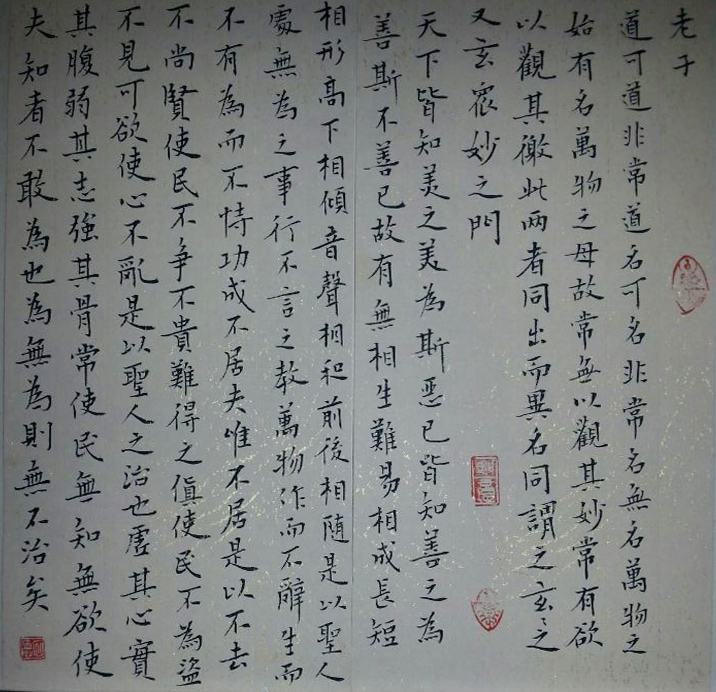 老子
道可道非常道名可名非常名無名萬物之
始有名萬物之母故常無以觀其妙常有欲
以觀其徼此兩者同出而異名同謂之玄之
又玄眾妙之門
天下皆知美之美為斯惡已皆知善之為
善斯不善已故有無相生難易相成長短
相形高下相傾音聲相和前後相隨是以聖人
處無為之事行不言之教萬物作而不辭生而
不有為而不恃功成不居夫惟不居是以不去
不尚賢使民不爭不貴難得之貨使民不為盜
不見可欲使心不亂是以聖人之治也虛其心實
其腹弱其志強其骨常使民無知無欲使
夫知者不敢為也為無為則無不治矣